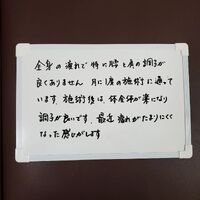 全身の疲れで特に腰と肩の調子が
良くありません 月に1度の施術に通って
います。施術後は、体全体が楽になり
調子が良いです。最近 疲れがたまりにくく
なった感じがします